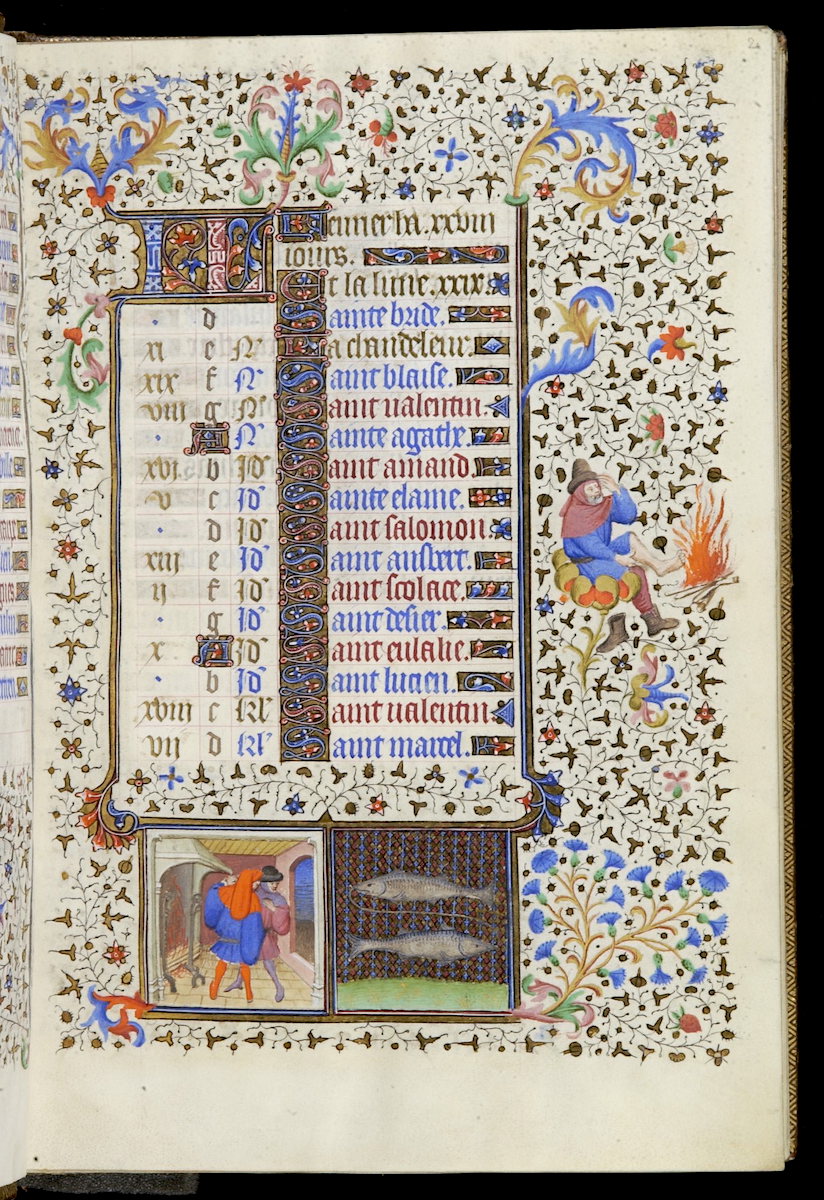 2
KL feurier ha .xxviii
iours.
Et la lune .xxix.
d Sainte bride.
xi e N La chandeleur.
xix f N Saint blaise.
viii g N Saint ualentin.
A N Sainte agathe.
xvi b Id Saint amand.
v c Id Sainte elaine.
d Id Saint salomon.
xiii e Id Saint ausbert.
ii f Id Saint scolace.
g Id Saint desier.
x A Id Saint eulalie.
b Id Saint lucien.
xviii c kl Saint ualentin.
vii d kl Saint marcel.